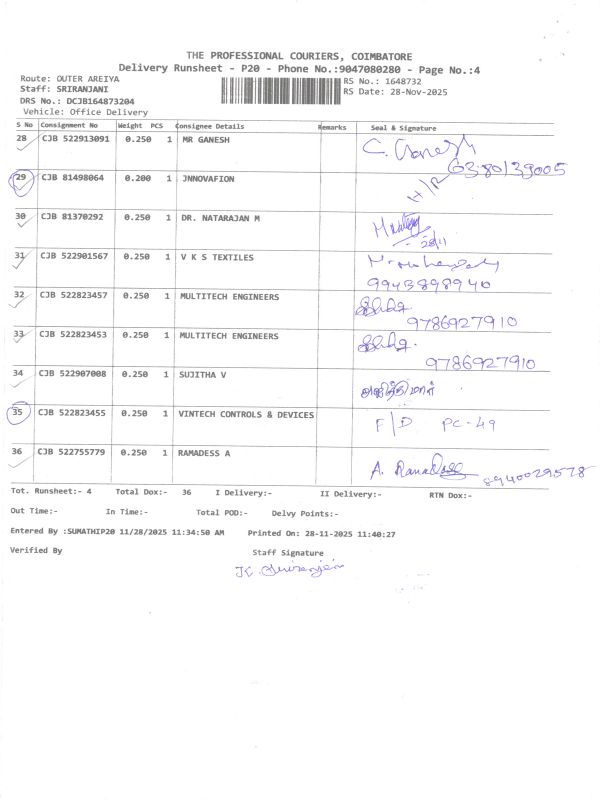 THE PROFESSIONAL COURIERS, COIMBATORE
Delivery Runsheet - P20 - Phone No.:9047080280 - Page No.:4
Route: OUTER AREIYA RS No.: 1648732
Staff: SRIRANJANI RS Date: 28-Nov-2025
DRS No.: DCJB164873204
Vehicle: Office Delivery
S No Consignment No Weight PCS Consignee Details Remarks Seal & Signature
28 CJB 522913091 0.250 1 MR GANESH C. Ganesh
6380139005
29 CJB 81498064 0.200 1 JNNOVAFION H/R
30 CJB 81370292 0.250 1 DR. NATARAJAN M
28/11
31 CJB 522901567 0.250 1 V K S TEXTILES
9943898940
32 CJB 522823457 0.250 1 MULTITECH ENGINEERS
9786927910
33 CJB 522823453 0.250 1 MULTITECH ENGINEERS
9786927910
34 CJB 522907008 0.250 1 SUJITHA V
35 CJB 522823455 0.250 1 VINTECH CONTROLS & DEVICES F/D PC-49
36 CJB 522755779 0.250 1 RAMADESS A A. Ramadess 8940029578
Tot. Runsheet:- 4 Total Dox:- 36 I Delivery:- II Delivery:- RTN Dox:-
Out Time:- In Time:- Total POD:- Delvy Points:-
Entered By :SUMATHIP20 11/28/2025 11:34:50 AM Printed On: 28-11-2025 11:40:27
Verified By Staff Signature
K. Sriranjani